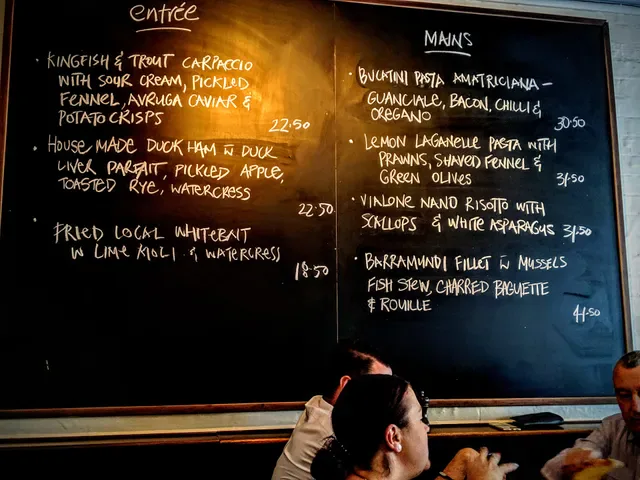 entrée
• KINGFISH & TROUT CARPACCIO
WITH SOUR CREAM, PICKLED
FENNEL, AVRUGA CAVIAR &
POTATO CRISPS
22.50
• HOUSE MADE DUCK HAM W DUCK
LIVER PARFAIT, PICKLED APPLE,
TOASTED RYE, WATERCRESS
22.50
• FRIED LOCAL WHITEBAIT
W LIME AIOLI & WATERCRESS
18.50
MAINS
• BUCATINI PASTA AMATRICIANA –
GUANCIALE, BACON, CHILLI &
OREGANO
30.50
• LEMON LAGANELLE PASTA WITH
PRAWNS, SHAVED FENNEL &
GREEN OLIVES
31.50
• VIALONE NANO RISOTTO WITH
SCALLOPS & WHITE ASPARAGUS 31.50
• BARRAMUNDI FILLET W MUSSELS
FISH STEW, CHARRED BAGUETTE
& ROUILLE
41.50